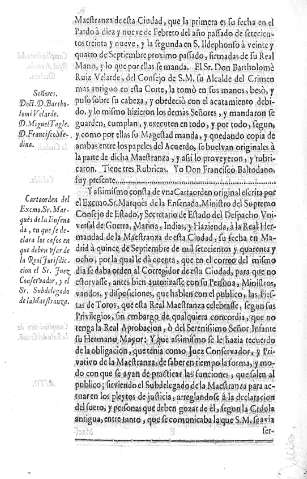 Maestranza de esta Ciudad, que la primera es su fecha en el
Pardo à diez y nueve de Febrero del año passado de setecien-
tos treinta y nueve, y la segunda en S. Ildephonso à veinte y
quatro de Septiembre proximo passado, firmadas de su Real
Mano, y lo que por ellas se manda. El Sr. Don Bartholomè
Ruiz Velarde, del Consejo de S.M. su Alcalde del Crimen
mas antiguo en esta Corte, la tomò en sus manos, besò, y
puso sobre su cabeza, y obedeciò con el acatamiento debi-
do, y lo mismo hizieron los demàs Señores, y mandaron se
guarden, cumplan, y executen en todo, y por todo, segun,
y como por ellas su Magestad manda, y quedando copia de
ambas entre los papeles del Acuerdo, se buelvan originales à
la parte de dicha Maestranza, y assi lo proveyeron, y rubri-
caron. Tiene tres Rubricas. Yo Don Francisco Baltodano
fuy presente.
Señores.
Doct. D. Bartho-
lomè Velarde.
D. Miguèl Tagle.
D. Francisco Me-
dina.
Y assimismo consta de vna Carta orden original escrita por
el Excmo. Sr. Marquès de la Ensenada, Ministro del Supremo
Consejo de Estado, y Secretario de Estado del Despacho Vni-
versal de Guerra, Marina, Indias, y Hazienda, à la Real Her-
mandad de la Maestranza de esta Ciudad, su fecha en Ma-
drid à quince de Septiembre de mil setecientos y quarenta y
ocho, por la qual le dà quenta, que en el correo del mismo
dia se daba orden al Corregidor de esta Ciudad, para que no
estorvasse, antes bien autorizasse con su Persona, Ministros,
vandos, y disposiciones, que hablen con el publico, las Fies-
tas de Toros, que essa Real Maestranza celebrasse, segun sus
Privilegios, sin embargo de qualquiera concordia, que no
tenga la Real Aprobacion, ò del Serenissimo Señor Infante
su Hermano Mayor; Y que assimismo se le hazia recuerdo
de la obligacion, que tenia como Juez Conservador, y Pri-
vativo de la Maestranza, de saber en tiempo la forma, y mo-
do con que se ayan de practicar las funciones, que salen al
publico; sirviendo el Subdelegado de la Maestranza para ac-
tuar en los pleytos de justicia, arreglandose à la declaracion
del fuero, y personas que deben gozar de èl, segun la Cedula
antigua, entre tanto, que se comunicaba la que S.M. se avia
ser-
Carta orden del
Excmo. Sr. Mar-
quès de la Ensena
da, en que se de-
clara los casos en
que debe vsar de
la Real Jurisdic-
cion el Sr. Juez
Conservador, y el
Sr. Subdelegado
de la Maestranza.